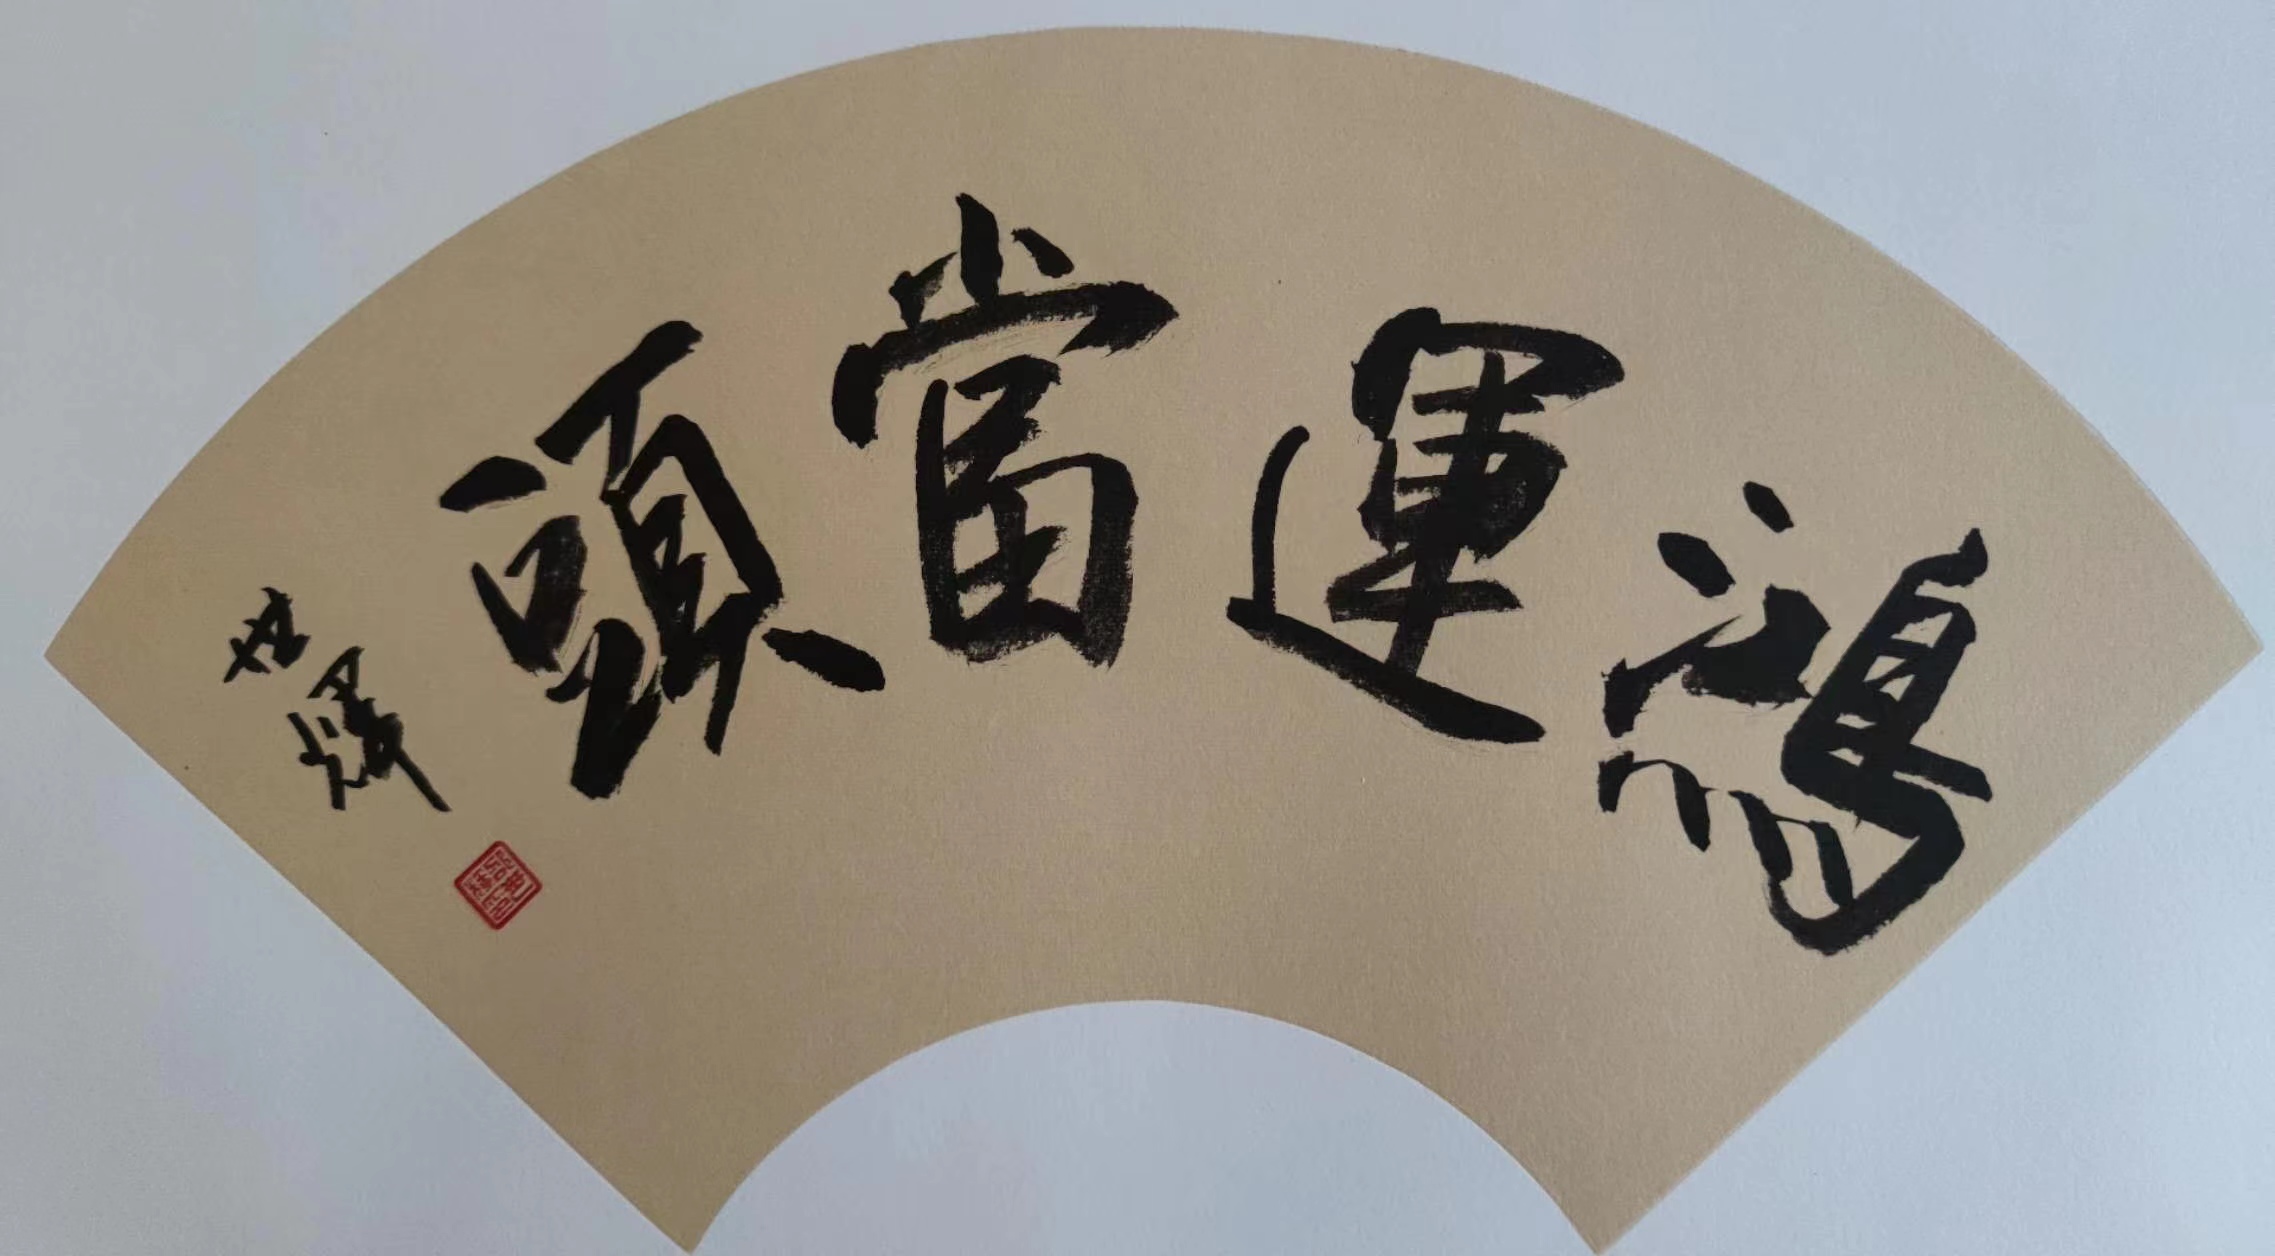 鴻運當頭
世鐸